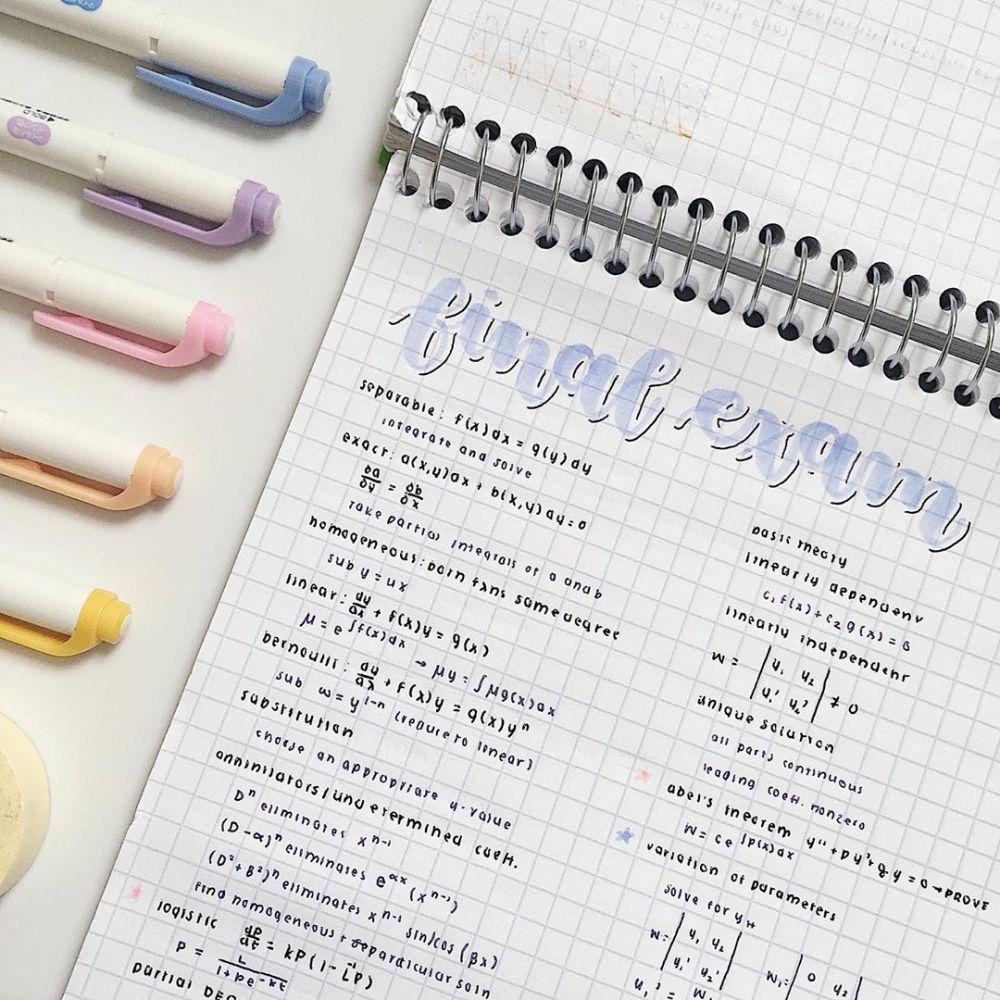 BOLD
final exam
separable: f(x)dx = g(y)dy
integrate and solve
exact: a(x,y)dx + b(x,y)dy = 0
∂a/∂y = ∂b/∂x
take partial integrals of a and b
homogeneous: both fxns same degree
sub y = ux
linear: dy/dx + f(x)y = g(x)
μ = e^∫f(x)dx → μy = ∫μg(x)dx
bernoulli: dy/dx + f(x)y = g(x)y^n
sub w = y^1-n (reduce to linear)
substitution
choose an appropriate u-value
annihilators/undetermined coeff.
D^n eliminates x^n-1
(D-α)^n eliminates e^αx (x^n-1)
(D²+β²)^n eliminates x^n-1 sin/cos(βx)
find homogeneous + particular soln
logistic dP/dt = kP(1-L⁻¹P)
P = L/1+be^-kt
partial DEQ
basic theory
linearly dependent
c₁f(x) + c₂g(x) = 0
linearly independent
W = | y₁ y₂ |
| y₁' y₂' | ≠ 0
unique solution
all parts continuous
leading coeff. nonzero
abel's theorem y''+py'+qy=0 → PROVE
W = ce^∫p(x)dx
variation of parameters
solve for yH
W = | y₁ y₂ |
| y₁' y₂' |
W₁ = | 0 y₂
u₁' = W₁